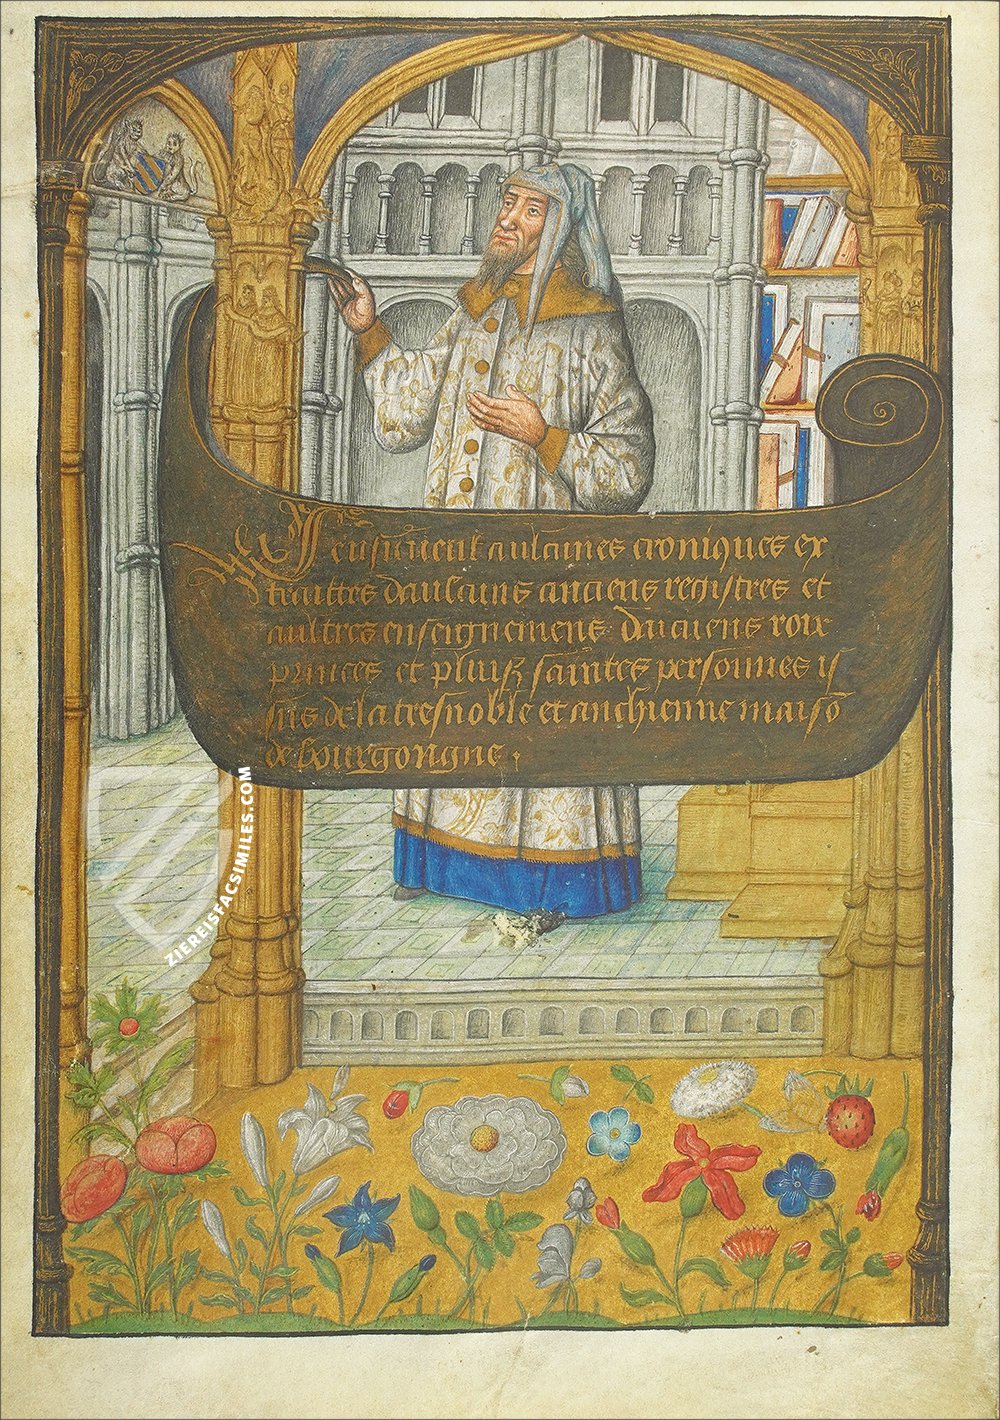 Cy sensuieuent aulcunes croniques ex
traittes daulcuns anciens registres et
aultres enseignemens danciens roix
princes et pluisʒ saintes personnes ys
sus de la tresnoble et anchienne maisõ
de bourgongne .
ZIEREISFACSIMILES.COM